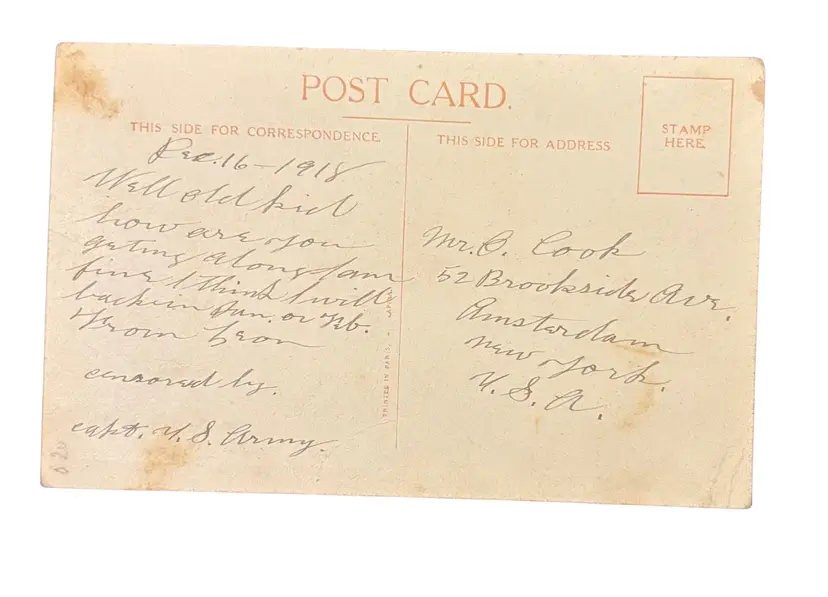 POST CARD.
THIS SIDE FOR CORRESPONDENCE
THIS SIDE FOR ADDRESS
STAMP
HERE
Dec. 16 - 1918
Well old kid
how are you
geting along I am
fine I think I will
back in Jan. or Feb.
From Leon
censored by.
capt. U. S. Army.
PRINTED IN PARIS
Mr. O. Cook
52 Brookside Ave.
Amsterdam
New York.
U. S. A.